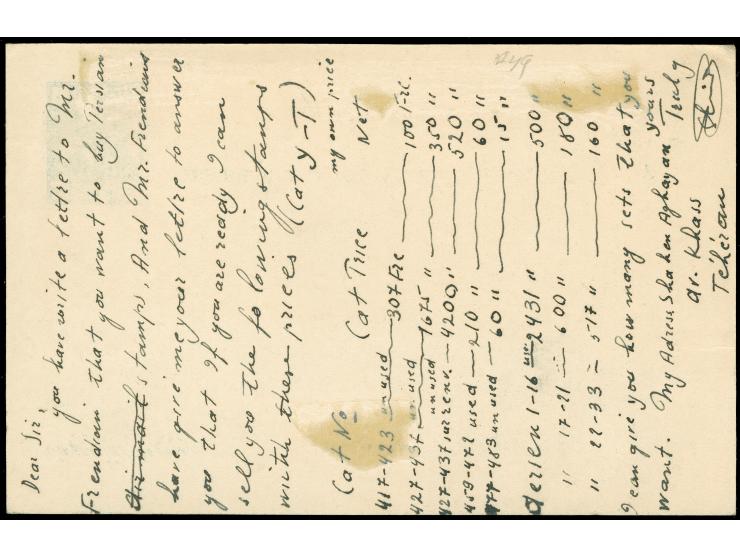 Dear Sir,
you have write a lettre to Mr.
Frendian that you want to buy Persian
Air mail stamps, And Mr. Frendian
have give me your lettre to answer
you that If you are ready I can
sell you the folowing stamps
with there prices (Cat Y-T)
my own price
Cat No Cat Price Net
417-423 unused 307 Frc 100 Frc.
427-437 unused 1675 " 350 "
427-437 surrenv. unused 4200 " 520 "
459-472 used 210 " 60 "
477-483 unused 60 " 15 "
Aerien 1-16 use 2431 " 500 "
" 17-21 " 600 " 180 "
" 22-33 " 517 " 160 "
I can give you how many sets that you
want. My Adress Shahen Aghayan yours
av. Khass Truly
Téhéran
249